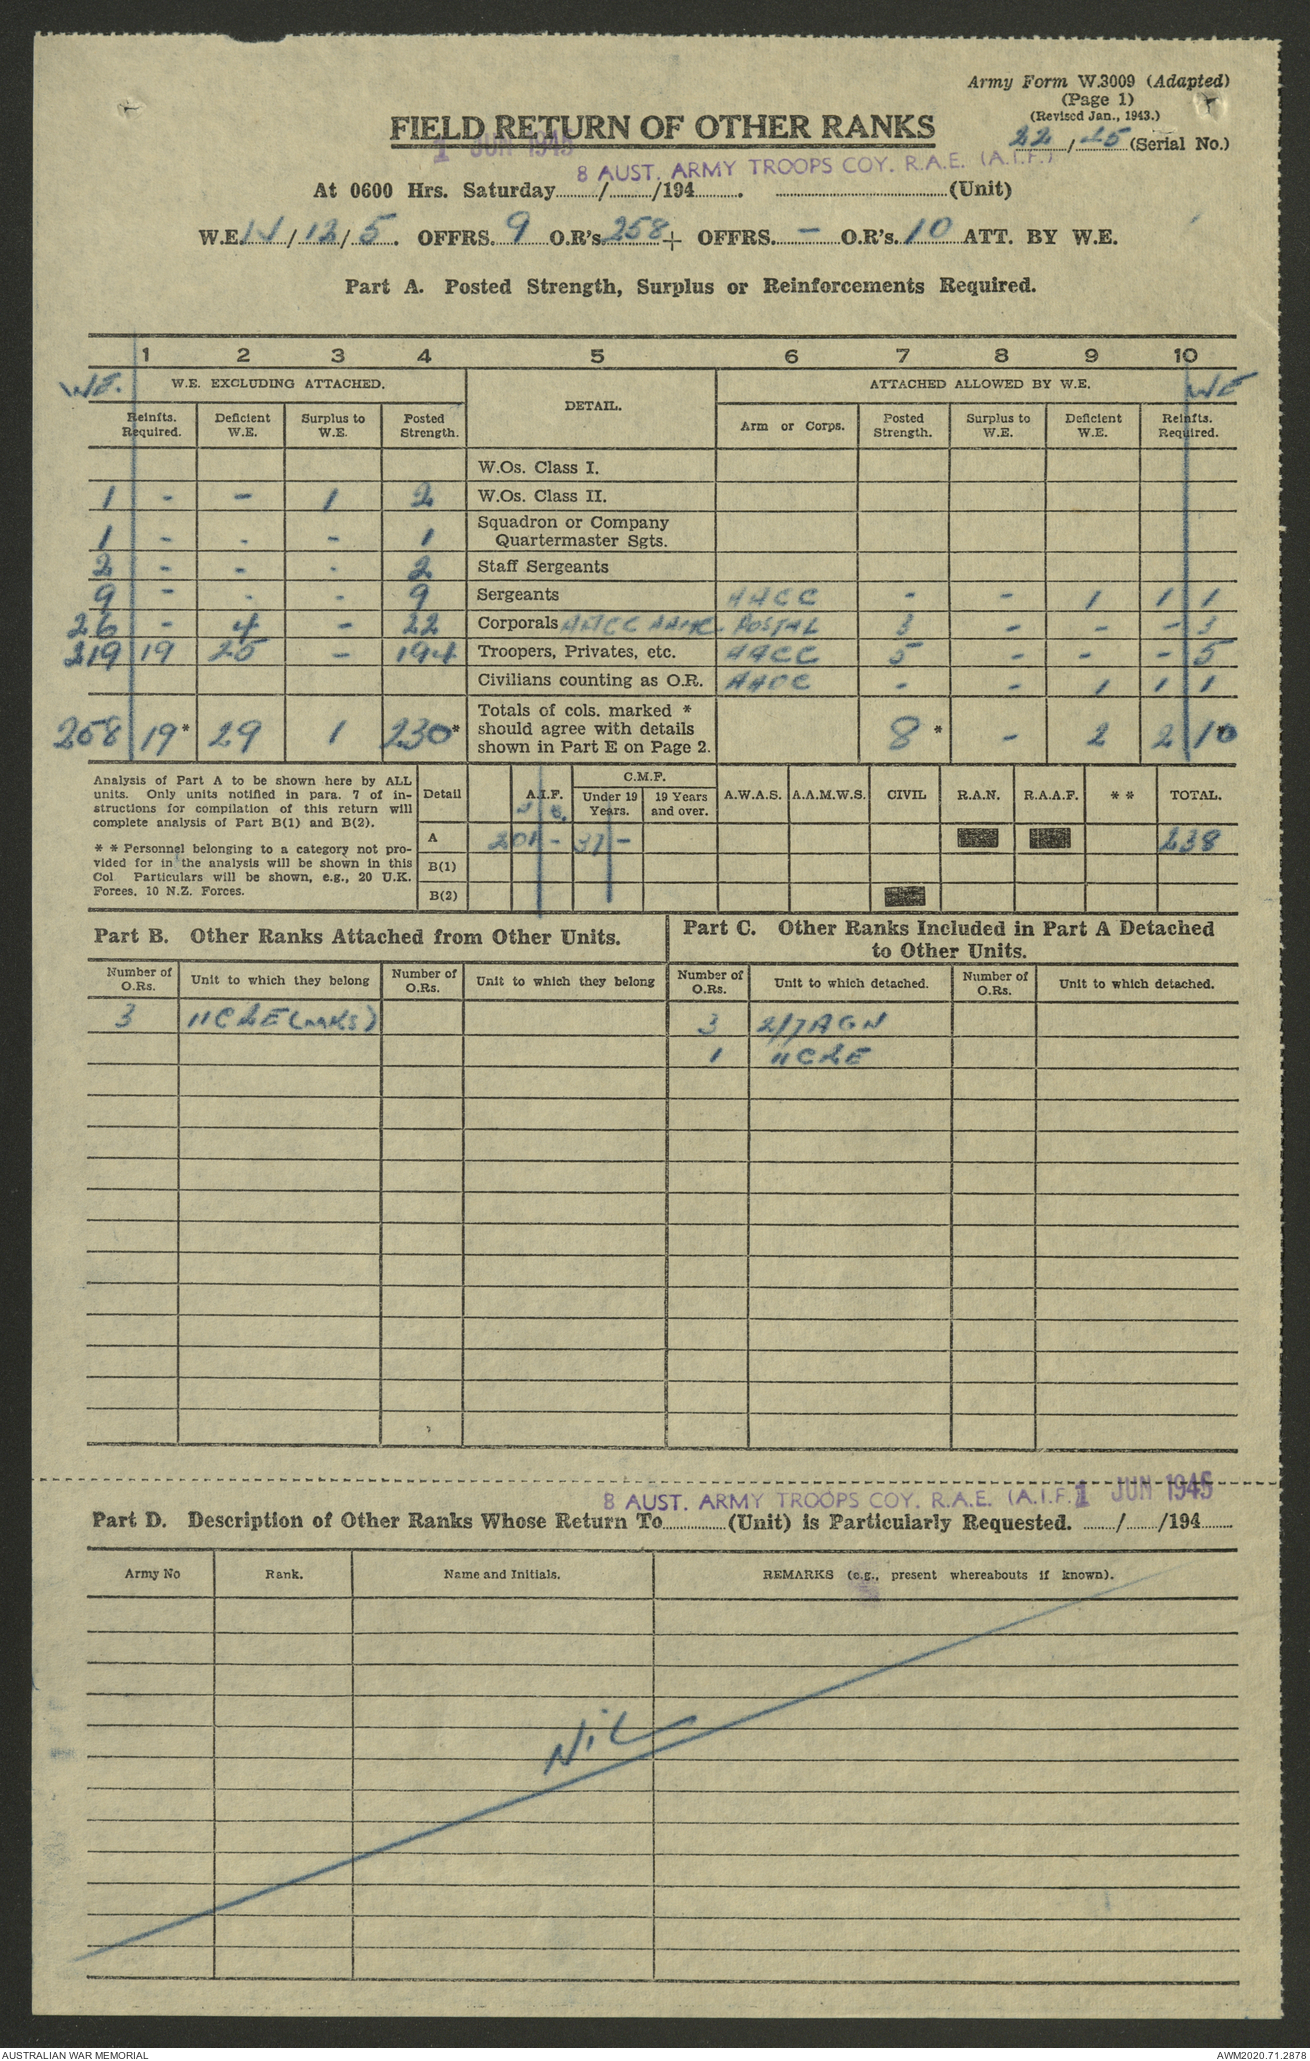 Army Form W.3009 (Adapted)
(Page 1)
(Revised Jan., 1943.)
22/45 (Serial No.)
FIELD RETURN OF OTHER RANKS
1 JUN 1945
8 AUST. ARMY TROOPS COY. R.A.E. (A.I.F.)
At 0600 Hrs. Saturday / /194 . (Unit)
W.E. /12/5. OFFRS. 9 O.R's. 258 + OFFRS. – O.R's. 10 ATT. BY W.E.
Part A. Posted Strength, Surplus or Reinforcements Required.
1 2 3 4 5 6 7 8 9 10
WE. W.E. EXCLUDING ATTACHED. DETAIL. ATTACHED ALLOWED BY W.E. WE
Reinfts. Required. Deficient W.E. Surplus to W.E. Posted Strength. Arm or Corps. Posted Strength. Surplus to W.E. Deficient W.E. Reinfts. Required.
W.Os. Class I.
1 - - 1 2 W.Os. Class II.
1 - - - 1 Squadron or Company Quartermaster Sgts.
2 - - - 2 Staff Sergeants
9 - - - 9 Sergeants AACC - - 1 1 1
26 - 4 - 22 Corporals AACC AAMC. POSTAL 3 - - - 3
219 19 25 - 194 Troopers, Privates, etc. AACC 5 - - - 5
Civilians counting as O.R. AAOC - - 1 1 1
258 19* 29 1 230* Totals of cols. marked * should agree with details shown in Part E on Page 2. 8 * - 2 2 10
Analysis of Part A to be shown here by ALL
units. Only units notified in para. 7 of in-
structions for compilation of this return will
complete analysis of Part B(1) and B(2).
* * Personnel belonging to a category not pro-
vided for in the analysis will be shown in this
Col Particulars will be shown, e.g., 20 U.K.
Forces, 10 N.Z. Forces.
Detail A.I.F. C.M.F. Under 19 Years. 19 Years and over. A.W.A.S. A.A.M.W.S. CIVIL R.A.N. R.A.A.F. * * TOTAL.
A 201 - 37 - 238
B(1)
B(2)
Part B. Other Ranks Attached from Other Units.
Part C. Other Ranks Included in Part A Detached
to Other Units.
Number of O.Rs. Unit to which they belong Number of O.Rs. Unit to which they belong Number of O.Rs. Unit to which detached. Number of O.Rs. Unit to which detached.
3 11 CRE 3 2/7 AGH
1 11 CRE
8 AUST. ARMY TROOPS COY. R.A.E. (A.I.F. 1 JUN 1945
Part D. Description of Other Ranks Whose Return To (Unit) is Particularly Requested. / /194
Army No Rank. Name and Initials. REMARKS (e.g., present whereabouts if known).
NiL
AUSTRALIAN WAR MEMORIAL AWM2020.71.2878